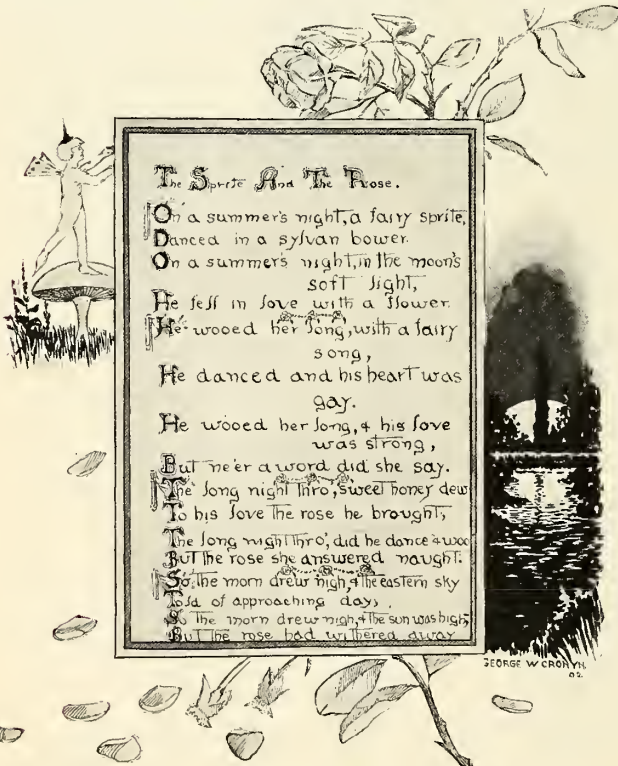 The Sprite And The Rose.
On a summer's night, a fairy sprite,
Danced in a sylvan bower.
On a summer's night, in the moon's
soft light,
He fell in love with a flower.
He wooed her long, with a fairy
song,
He danced and his heart was
gay.
He wooed her long, & his love
was strong,
But ne'er a word did she say.
The long night thro', sweet honey dew
To his love the rose he brought,
The long night thro', did he dance & woo
But the rose she answered naught.
So the morn drew nigh, & the eastern sky
Told of approaching day,
So the morn drew nigh, & the sun was high,
But the rose had withered away
GEORGE W CRONYN
02.